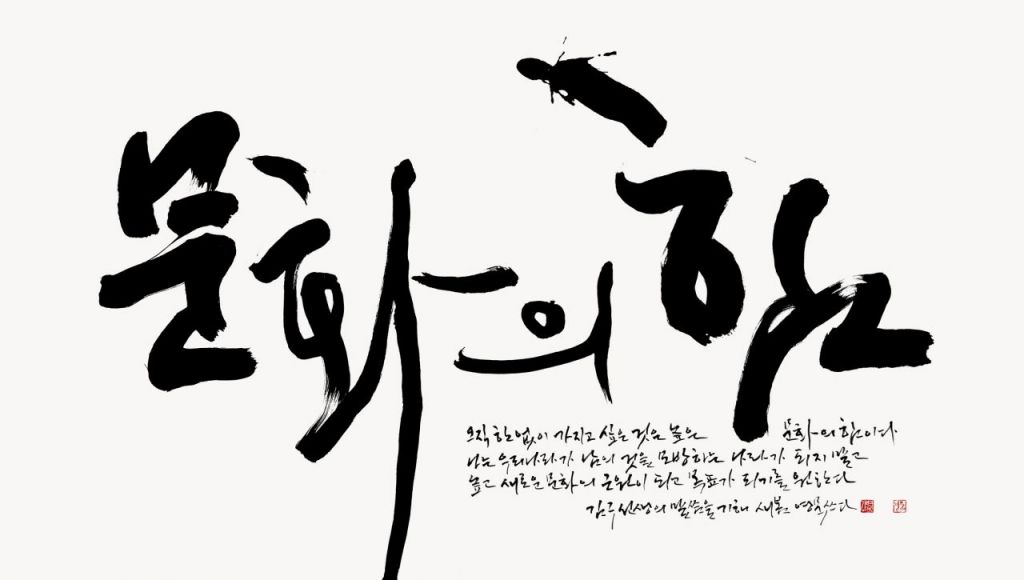 문화의 힘
오직 한없이 가지고 싶은 것은 높은 문화의 힘이다
나는 우리나라가 남의 것을 모방하는 나라가 되지 말고
높고 새로운 문화의 근원이 되고 목표가 되기를 원한다
김구선생의 말씀을